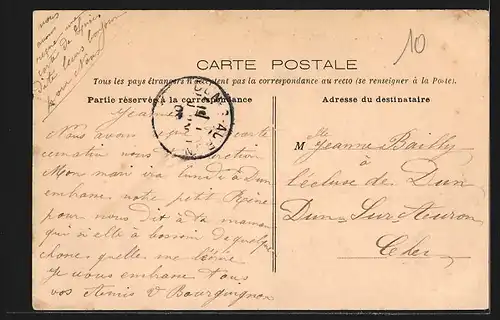 nous
avons
reçue une
carte de Denise
Dite leurs bonjour
pour Nous
10
CARTE POSTALE
Tous les pays étrangers n'acceptent pas la correspondance au recto (se renseigner à la Poste).
Partie réservée à la correspondance
Adresse du destinataire
Jeanne
Nous avons reçue ta carte
cematin nous
Mon mari ira lundi à Dun
embrasse notre petit Reine
pour nous dit à ta maman
que si elle à besoin de quelque
chose quelle me l'écrive
Je vous embrasse Tous
vos Amis V Bourguignon
Mlle Jeanne Bailly
à
l'écluse de Dun
Dun-Sur-Auron
Cher